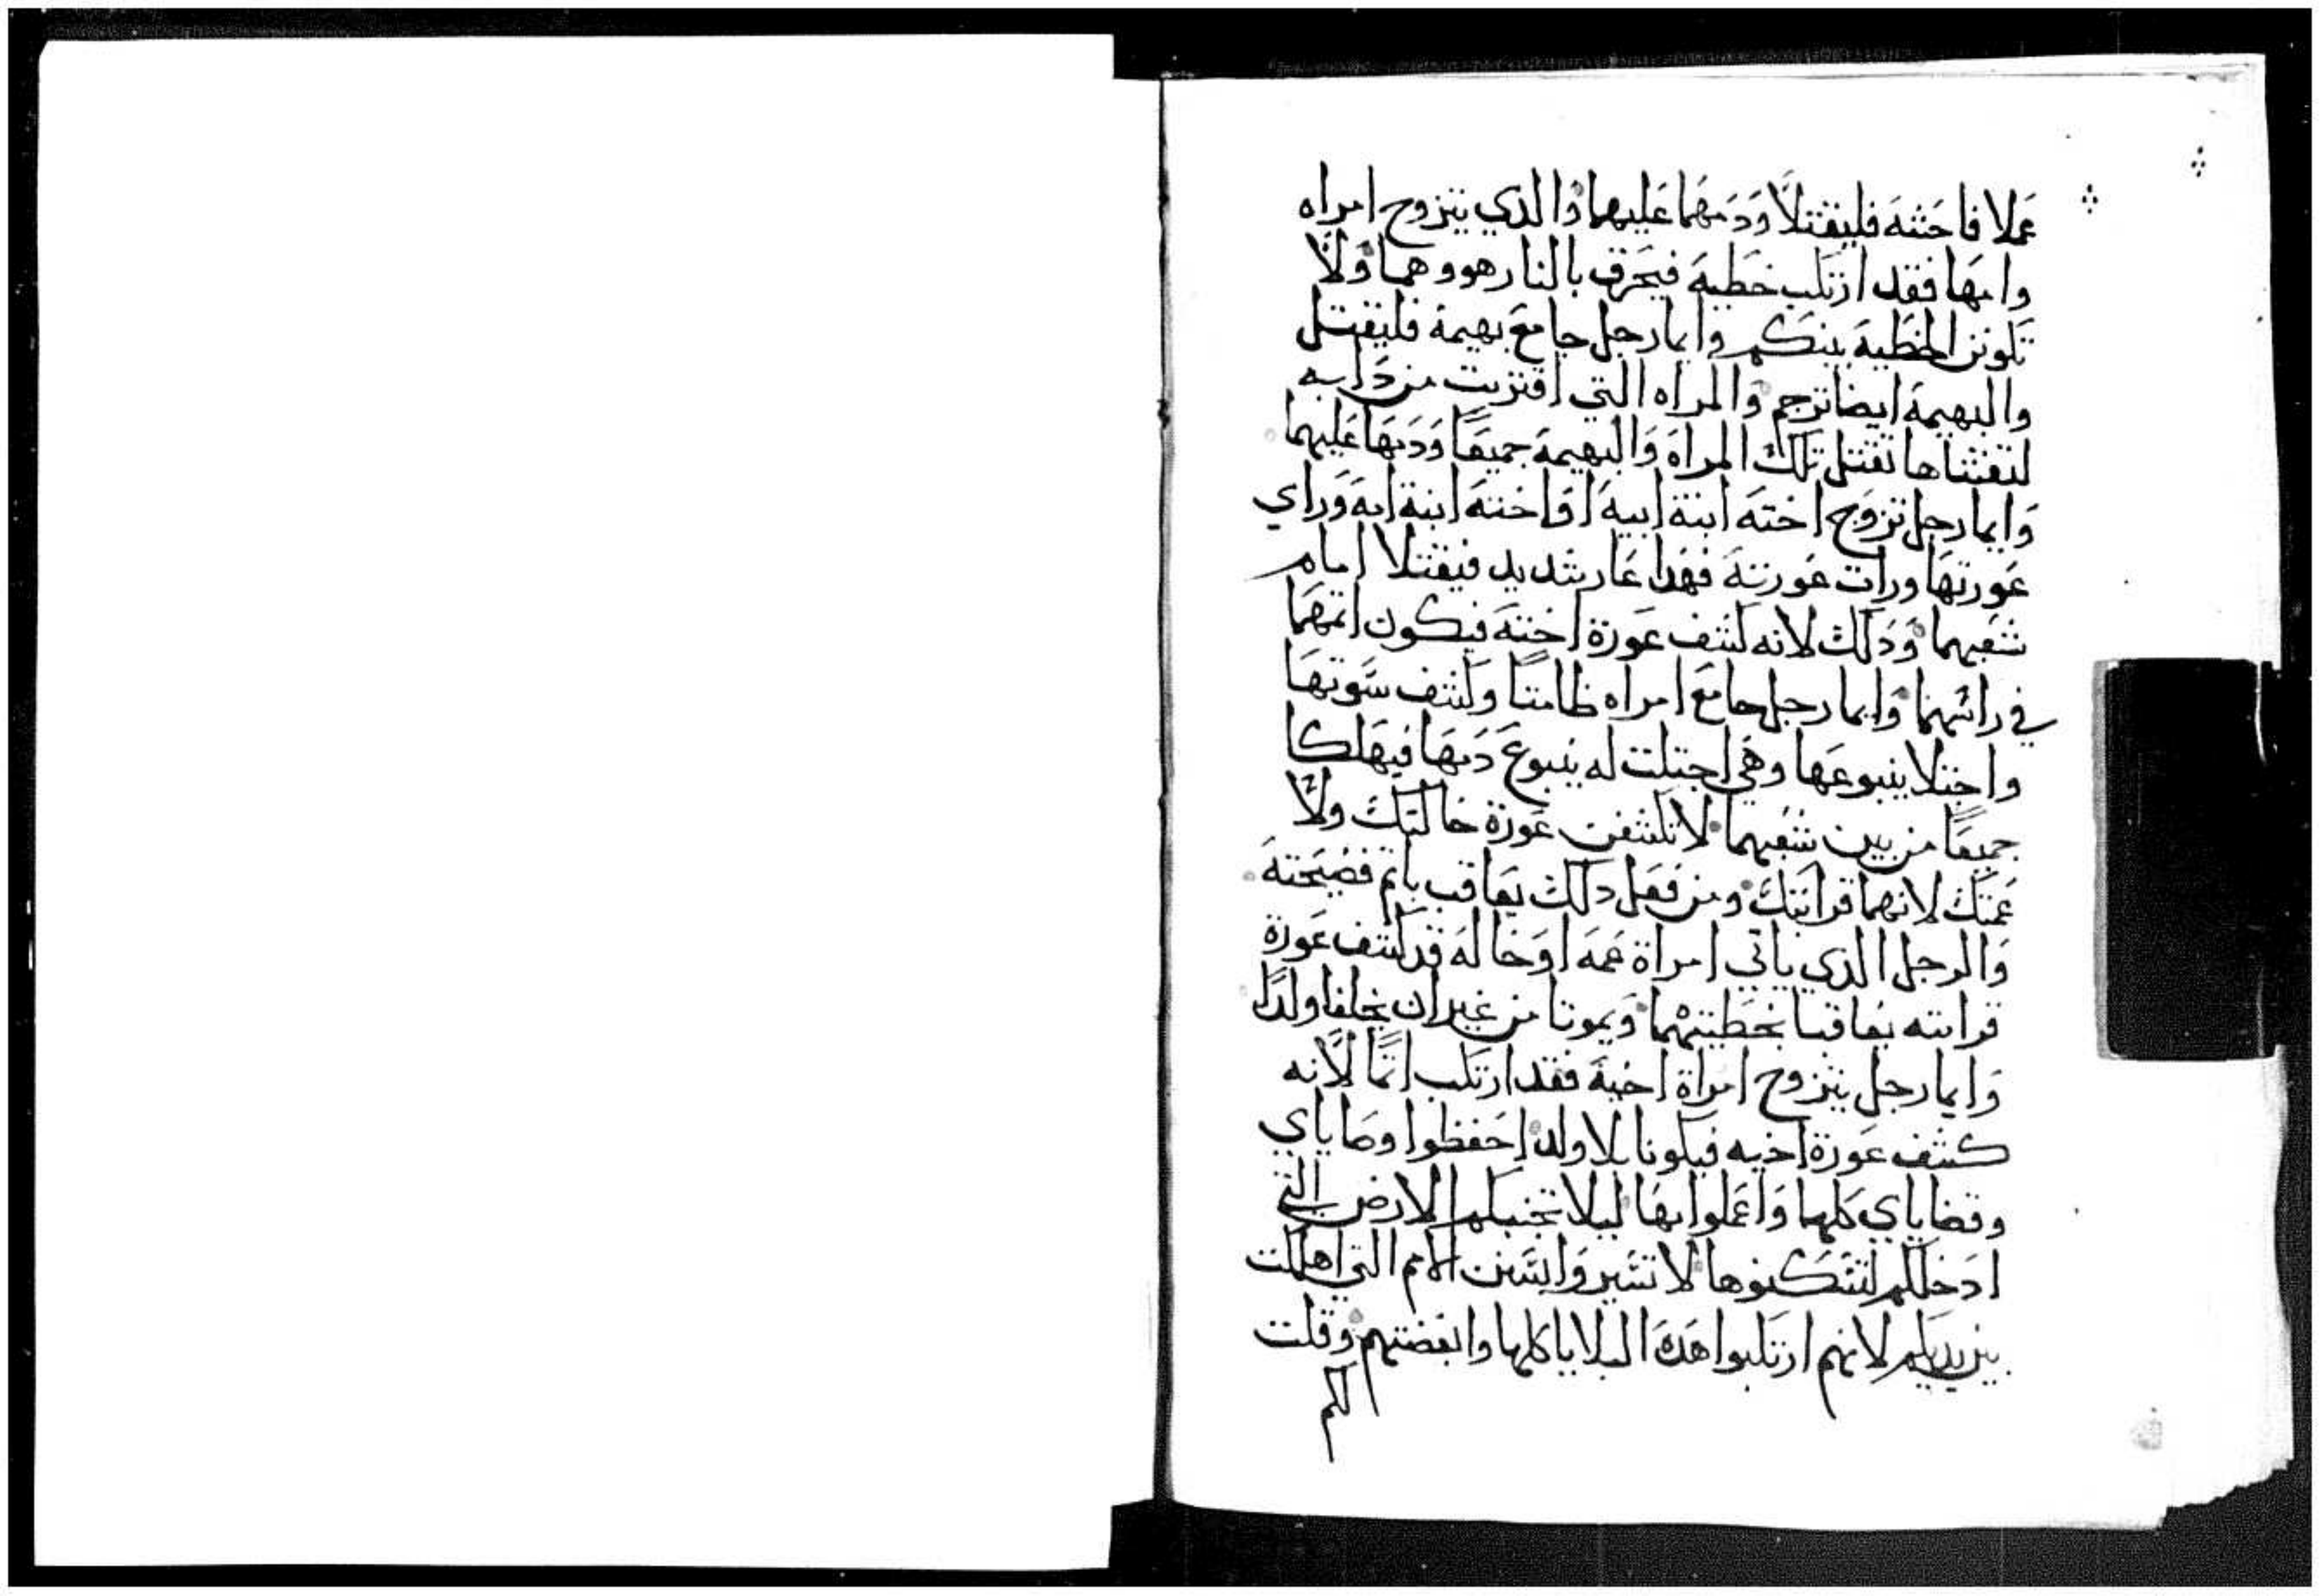 عملا فاحشه فليقتلا ودمهما عليهما والذي يتزوج امراه
وامها فقد ارتكب خطية فيحرق بالنار هو وهما ولا
تكونن الخطية بينكم وايما رجل جامع بهيمة فليقتل
والبهيمة ايضا ترجم والمراه التي اقتربت من دابه
لتغشاها تقتل تلك المراة والبهيمة جميعًا ودمها عليهما
وايما رجل تزوج اخته ابنة ابيه او اخته ابنة امه وراي
عورتها ورات عورته فهدا عار شديد فيقتلا امام
شعبهما ودلك لانه كشف عورة اخته فيكون اثمهما
في راسهما وايما رجل جامع امراه طامتًا وكشف سوتها
واجتلا ينبوعها وهي اجتلت له ينبوع دمها فيهلكا
جميعًا من بين شعبهما لا تكشفن عورة خالتك ولا
عمتك لانهما قرابتك ومن فعل دلك يعاقب باثم فضيحته
والرجل الذي ياتي امراة عمه او خاله قد كشف عورة
قرابته يعاقبا بخطيتهما ويموتا من غير ان يخلفا ولدًا
وايما رجل يتزوج امراة اخيه فقد ارتكب اثمًا لانه
كشف عورة اخيه فيكونا بلا ولد احفظوا وصاياي
وقضاياي كلها واعملوا بها ليلا تجنبكم الارض التي
ادخلكم لتسكنوها لا تسيروا بسنن الامم التي اهلكت
بين يديكم لانهم ارتكبوا هده البلايا كلها وابغضتهم وقلت
لكم